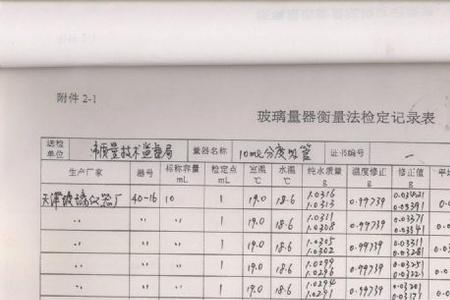 附件 2-1
玻璃量器衡量法检定记录表
送检单位 市质量技术监督局 量器名称 10mL分度吸管 证书编号 —
生产厂家 器号 标称容量 mL 检定点 mL 室温 ℃ 水温 ℃ 纯水质量 g 温度修正 g 修正值 g 平均
天津玻璃仪器厂 40-16 10 1 19.0 18.6 1.0316 1.0313 0.99739 0.03421 0.03391
〃 〃 1 19.0 18.6 1.0311 1.0308 0.99739 0.03371 0.03341
〃 〃 1 19.0 18.6 1.0305 1.0302 0.99739 0.03311 0.03281
〃 〃 1 19.0 18.6 1.0299 1.0296 0.99739 0.03251 0.03221
〃 〃 1 19.0 18.6 1.0294 1.0291 0.99739 0.03201 0.03171